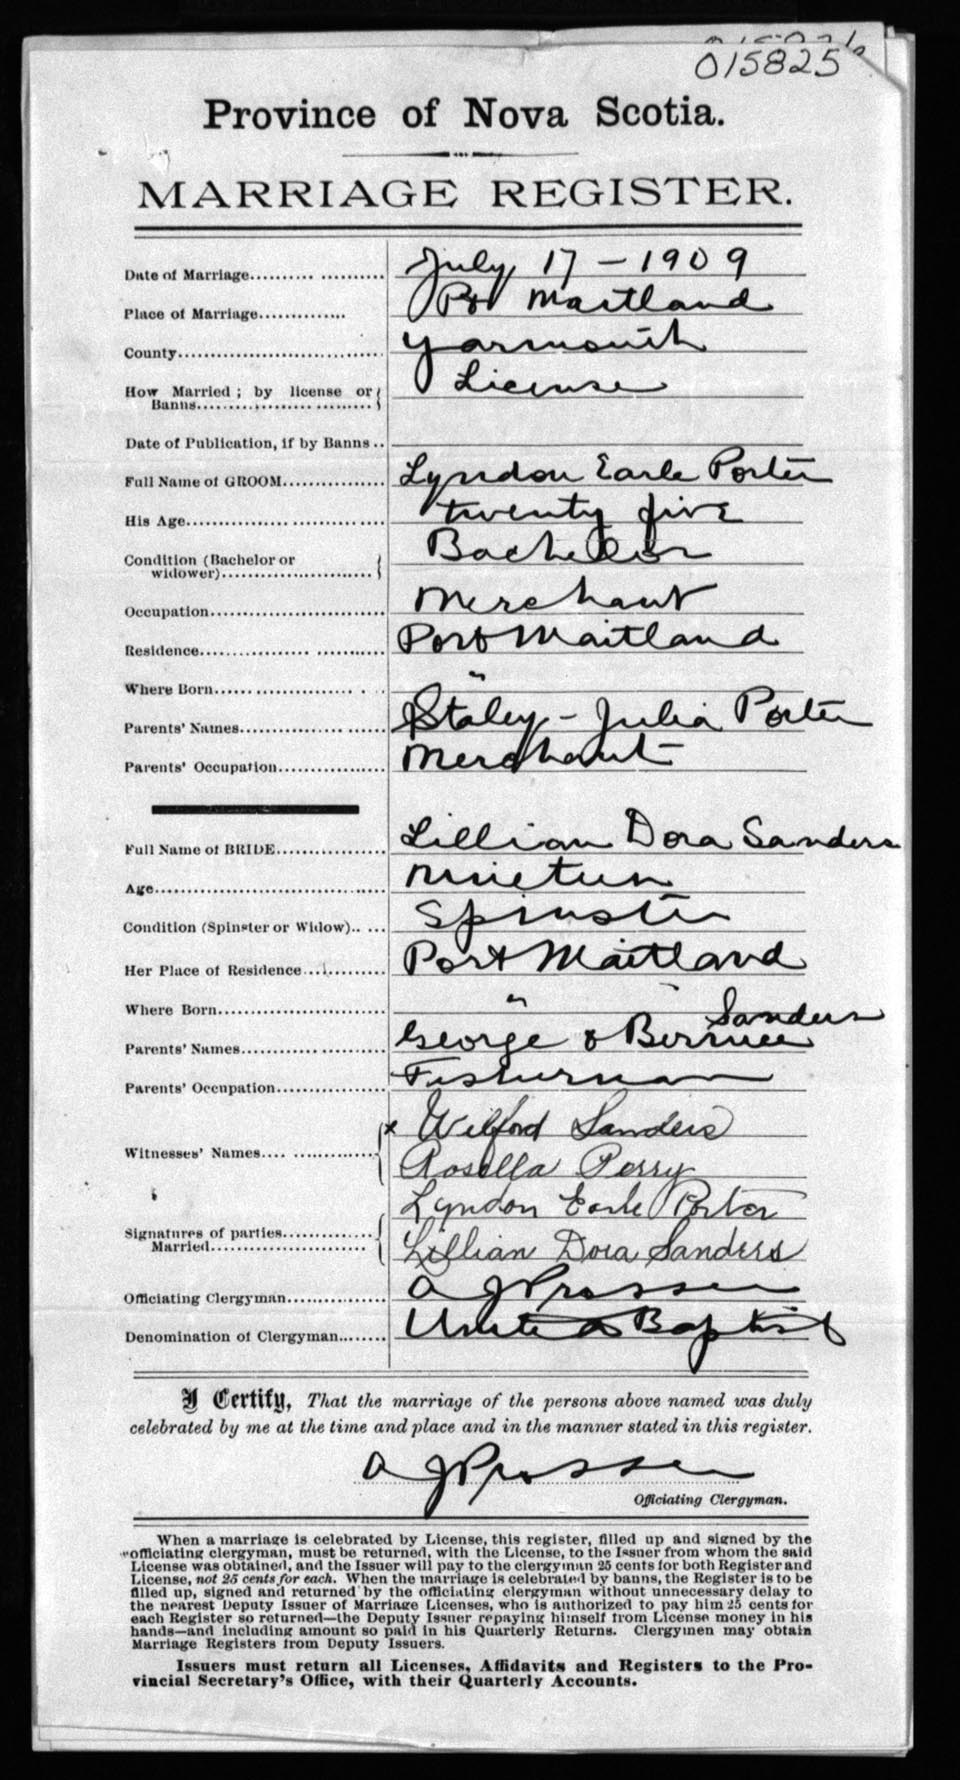 015825
Province of Nova Scotia.
MARRIAGE REGISTER.
Date of Marriage.................... July 17 - 1909
Place of Marriage.............. Pt Maitland
County.............................. Yarmouth
How Married ; by license or License
Banns....................
Date of Publication, if by Banns ..
Full Name of GROOM................. Lyndon Earle Porter
His Age............................. twenty five
Condition (Bachelor or Bachelor
widower).........................
Occupation.......................... Merchant
Residence........................... Port Maitland
Where Born......................... "
Parents' Names...................... Staley - Julia Porter
Parents' Occupation................. Merchant
Full Name of BRIDE................. Lillian Dora Sanders
Age................................. Nineteen
Condition (Spinster or Widow)..... Spinster
Her Place of Residence............. Port Maitland
Where Born......................... "
Sanders
Parents' Names...................... George & Bernice
Parents' Occupation................. Fisherman
x Wilford Sanders
Witnesses' Names.................... Rosella Perry
Lyndon Earle Porter
Signatures of parties..............
Married........................ Lillian Dora Sanders
Officiating Clergyman............... A J Prosser
Denomination of Clergyman........ United Baptist
I Certify, That the marriage of the persons above named was duly
celebrated by me at the time and place and in the manner stated in this register.
A J Prosser
Officiating Clergyman.
When a marriage is celebrated by License, this register, filled up and signed by the
officiating clergyman, must be returned, with the License, to the Issuer from whom the said
License was obtained, and the Issuer will pay to the clergyman 25 cents for both Register and
License, not 25 cents for each. When the marriage is celebrated by banns, the Register is to be
filled up, signed and returned by the officiating clergyman without unnecessary delay to
the nearest Deputy Issuer of Marriage Licenses, who is authorized to pay him 25 cents for
each Register so returned—the Deputy Issuer repaying himself from License money in his
hands—and including amount so paid in his Quarterly Returns. Clergymen may obtain
Marriage Registers from Deputy Issuers.
Issuers must return all Licenses, Affidavits and Registers to the Pro-
vincial Secretary's Office, with their Quarterly Accounts.